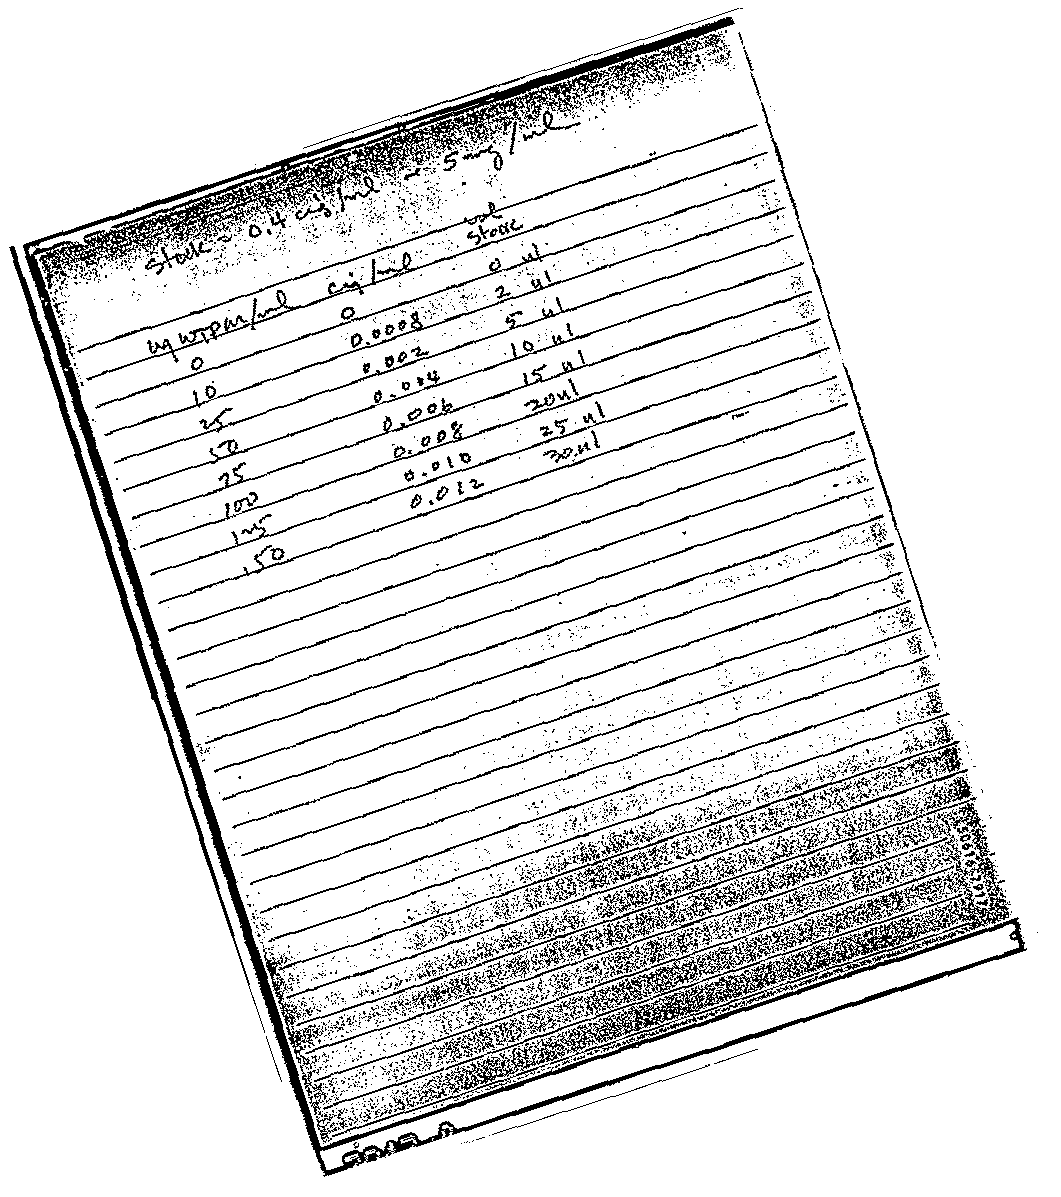 Stock = 0.4 cig/ml ≈ 5 mg/ml
ug WTPM/ml cig/ml vol stock
0 0 0 ul
10 0.0008 2 ul
25 0.002 5 ul
50 0.004 10 ul
75 0.006 15 ul
100 0.008 20 ul
125 0.010 25 ul
150 0.012 30 ul